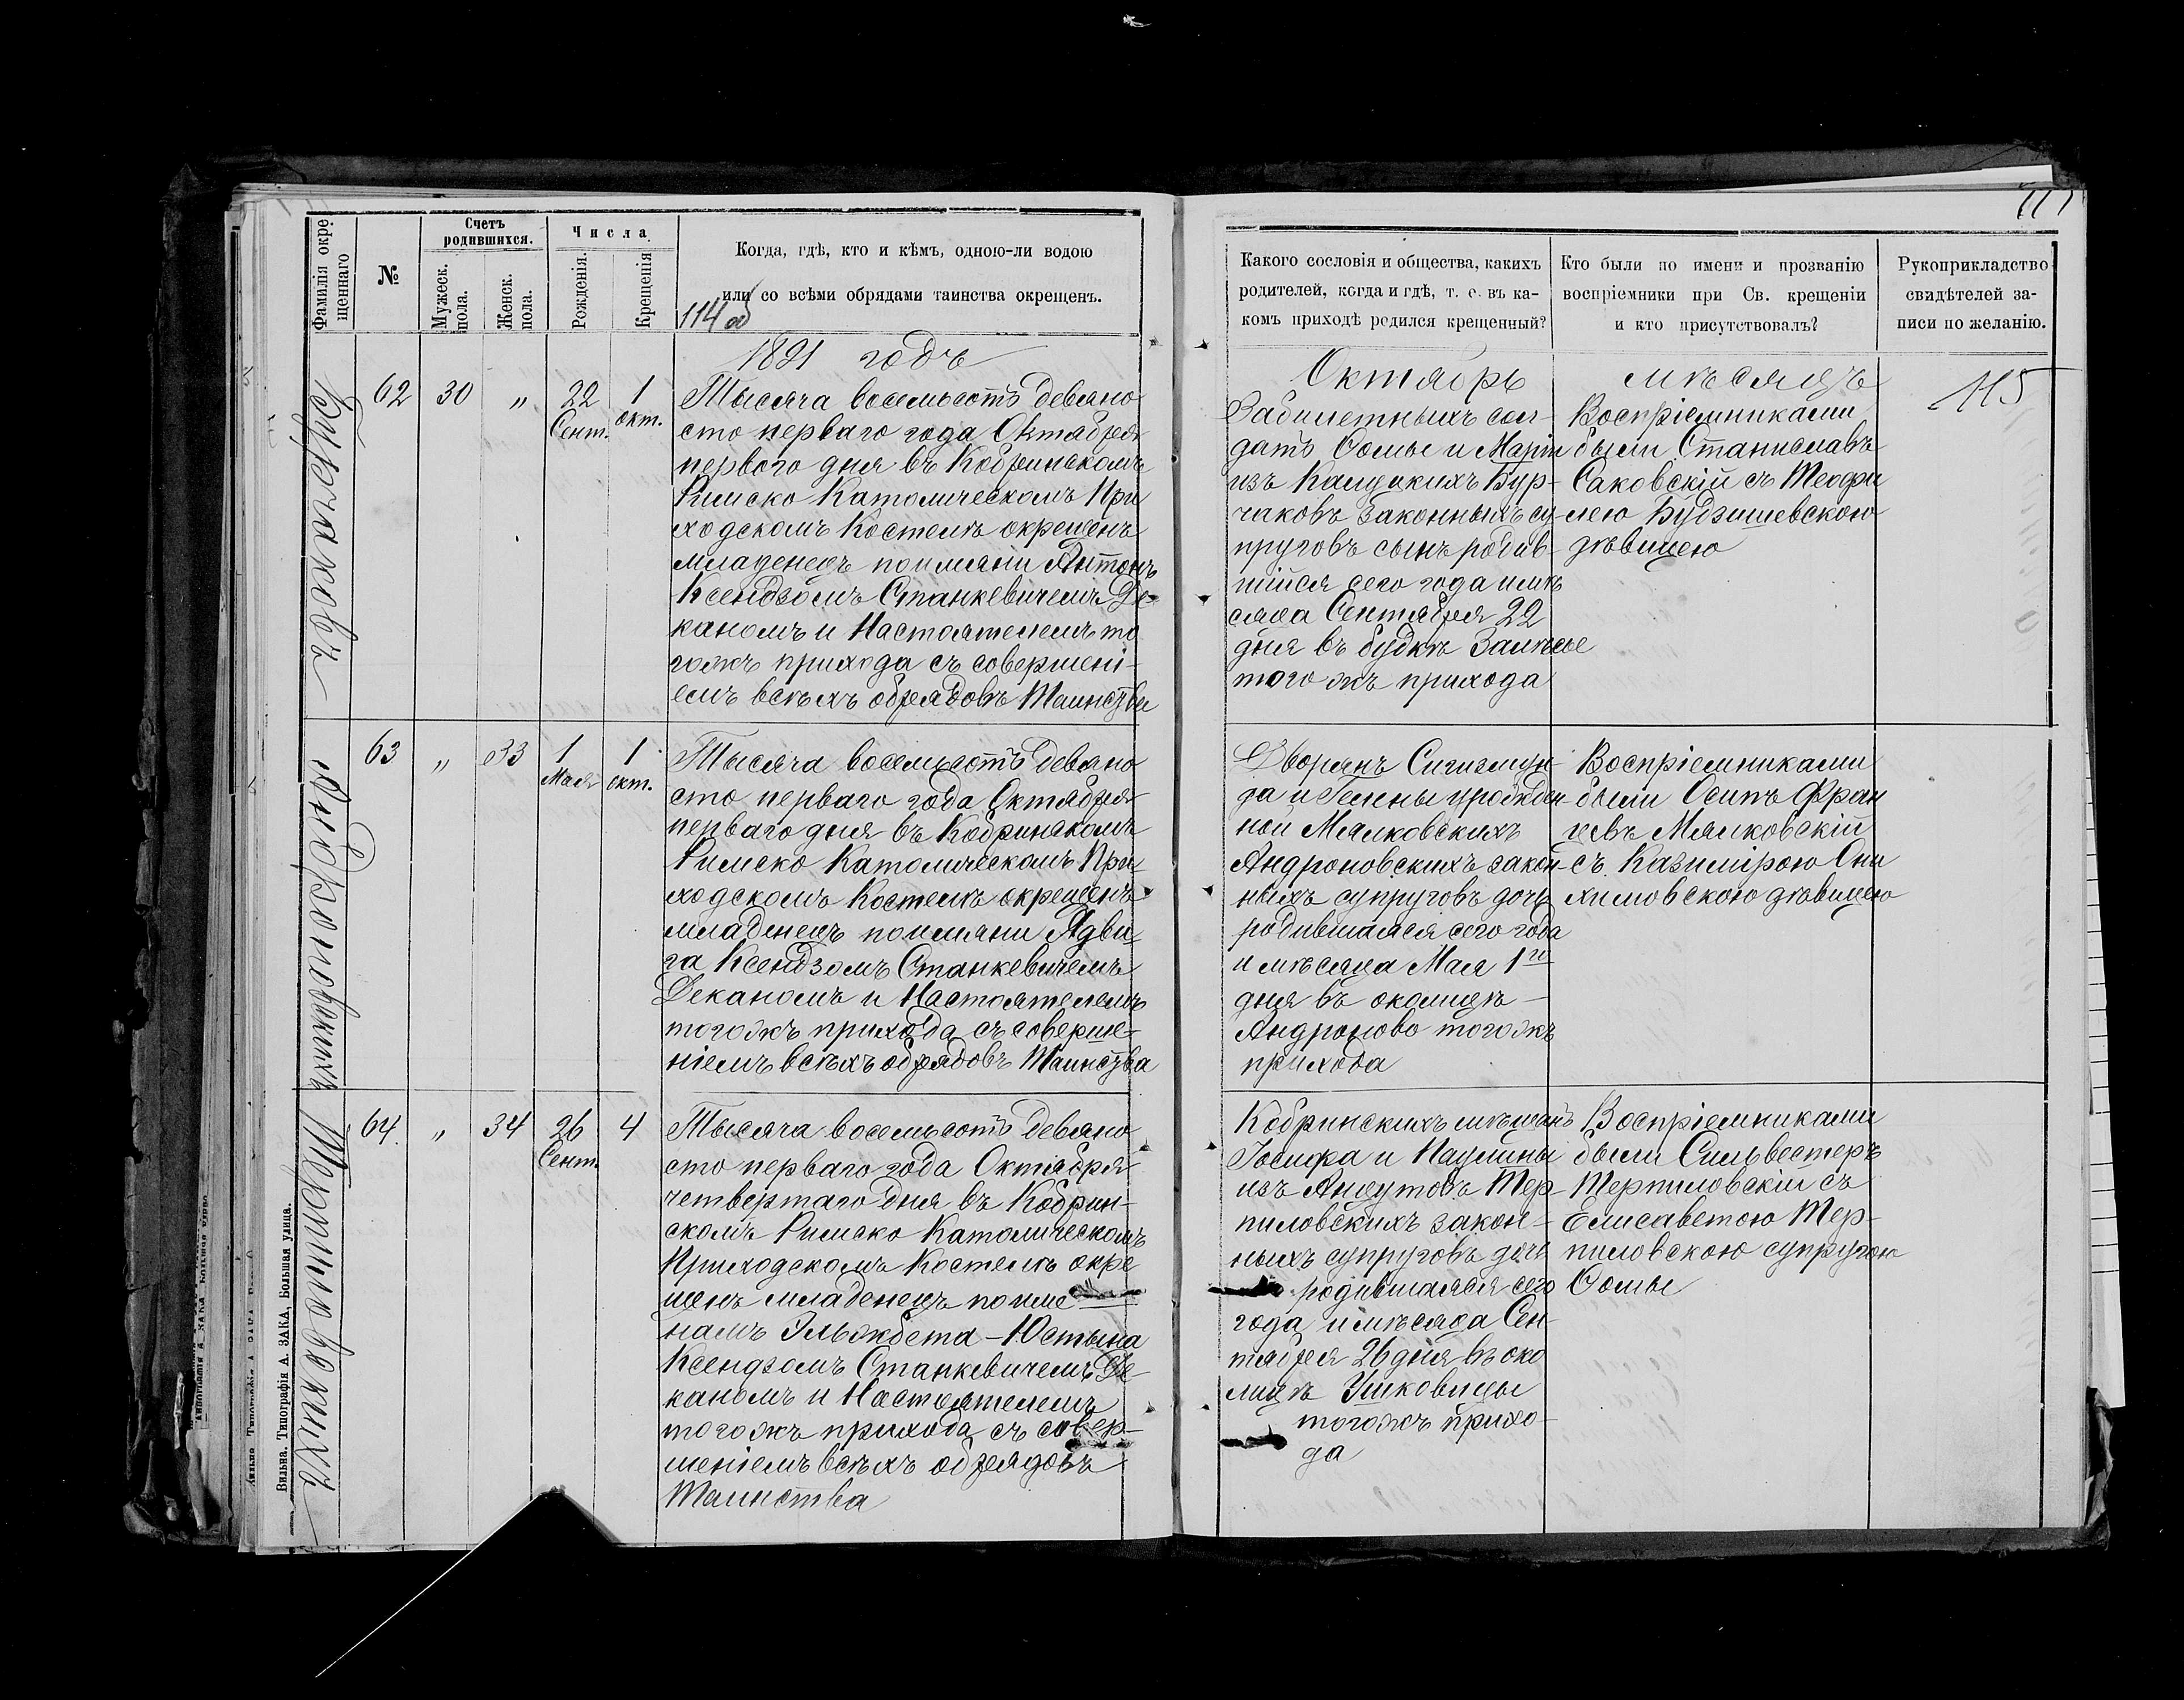 Фамилія окре-
щеннаго
№
Счетъ
родившихся.
Мужеск.
пола.
Женск.
пола.
Числа
Рожденія.
Крещенія
Когда, гдѣ, кто и кѣмъ, одною-ли водою
или со всѣми обрядами таинства окрещенъ.
114 об
1891 годъ
Бурчаковъ
62 30 „ 22 Сент. 1 окт.
Тысяча восемьсотъ девяно
сто перваго года Октября
первого дня въ Кобринскомъ
Римско Католическомъ При
ходскомъ Костелѣ окрещенъ
младенецъ по имяни Антонъ
Ксендзомъ Станкевичемъ Де-
каномъ и Настоятелемъ то
гожъ прихода съ совершені-
емъ всѣхъ обрядовъ Таинства
Андроновскихъ
63 „ 33 1 Мая 1 окт.
Тысяча восемьсотъ девяно
сто перваго года Октября
перваго дня въ Кобринскомъ
Римско Католическомъ При-
ходскомъ Костелѣ окрещенъ
младенецъ по имяни Ядви-
га Ксендзомъ Станкевичемъ
Деканомъ и Настоятелемъ
тогожъ прихода съ соверше-
ніемъ всѣхъ обрядовъ Таинства
Терпиловскихъ
64. „ 34 26 Сент. 4
Тысяча восемьсотъ девяно
сто перваго года Октября
четвертаго дня въ Кобрин-
скомъ Римско Католическомъ
Приходскомъ Костелѣ окре
щенъ младенецъ по име
намъ Эльжбета-Юстына
Ксендзомъ Станкевичемъ Де-
каномъ и Настоятелемъ
тогожъ прихода съ совер-
шеніемъ всѣхъ обрядовъ
Таинства
Вильна. Типографія А. ЗАКА, Большая улица.
Какого сословія и общества, какихъ
родителей, когда и гдѣ, т. е. въ ка-
комъ приходѣ родился крещенный?
Кто были по имени и прозванію
воспріемники при Св. крещеніи
и кто присутствовалъ?
Рукоприкладство
свидѣтелей за-
писи по желанію.
Октябрь мѣсяцъ
115
Забилетныхъ сол-
датъ Ѳомы и Маріи
изъ Бур-
чаковъ законныхъ су-
пруговъ сынъ родив-
шійся сего года и мѣ
сяца Сентября 22
дня въ будкѣ
того жъ прихода
Воспріемниками
были Станиславъ
Саковскій съ Теофи
лею Будзишевскою
дѣвицею
Дворянъ Сигизмун-
да и Гелены урожден-
ной Мялковскихъ
Андроновскихъ закон-
ныхъ супруговъ дочь
родившаяся сего года
и мѣсяца Мая 1го
дня въ околицѣ
Андроново тогожъ
прихода
Воспріемниками
были Осипъ Фран
цевъ Мялковскій
съ Казимірою Они
химовскою дѣвицею
Кобринскихъ мѣщанъ
Іосифа и Паулины
изъ Анцутовъ Тер-
пиловскихъ закон-
ныхъ супруговъ дочь
родившаяся сего
года и мѣсяца Сен-
тября 26 дня въ око
лицѣ Ушковицы
тогожъ прихо-
да
Воспріемниками
были Сильвестеръ
Терпиловскій съ
Елисаветою Тер-
пиловскою супругою
Ѳомы